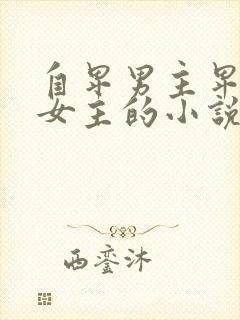 自卑男主卑
女主的小說
西鸾沐